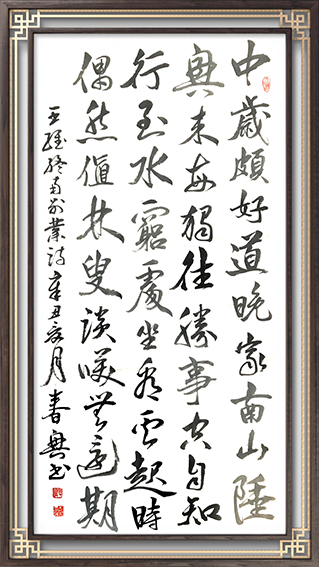 中歲頗好道晚家南山陲
興來每獨往勝事空自知
行至水窮處坐看雲起時
偶然值林叟談笑無還期
王維終南別業詩辛丑家月春興书